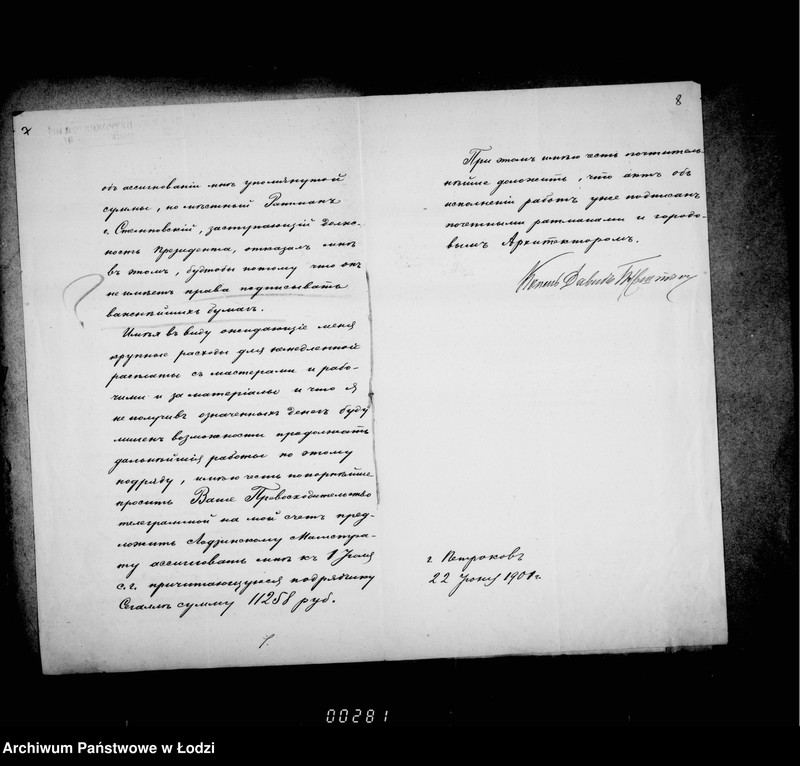 7
объ ассигнованіи мнѣ упомянутой
суммы, но мѣстный Ратманъ
г. Стемповскій, заступающій долж-
ность Президента, отказалъ мнѣ
въ этомъ, будтобы потому что онъ
не имѣетъ права подписывать
важнѣйшихъ бумагъ.
Имѣя въ виду ожидающіе меня
крупные расходы для немедленной
расплаты съ мастерами и рабо-
чими и за матеріалы и что я
не получивъ означенныхъ денегъ буду
лишенъ возможности продолжать
дальнѣйшія работы по этому
подряду, имѣю честь покорнѣйше
просить Ваше Превосходительство
телеграммой на мой счетъ пред-
ложить Лодзинскому Магистра-
ту ассигновать мнѣ къ 1 Іюля
с.г. причитающуюся подрядчику
сумму 11258 руб.
8
При этомъ имѣю честь почтитель-
нѣйше доложить, что актъ объ
исполненіи работъ уже подписанъ
почетными ратманами и городо-
вымъ Архитекторомъ.
Давидъ
г. Петроковъ
22 Іюня 1901 г.
00281
Archiwum Państwowe w Łodzi